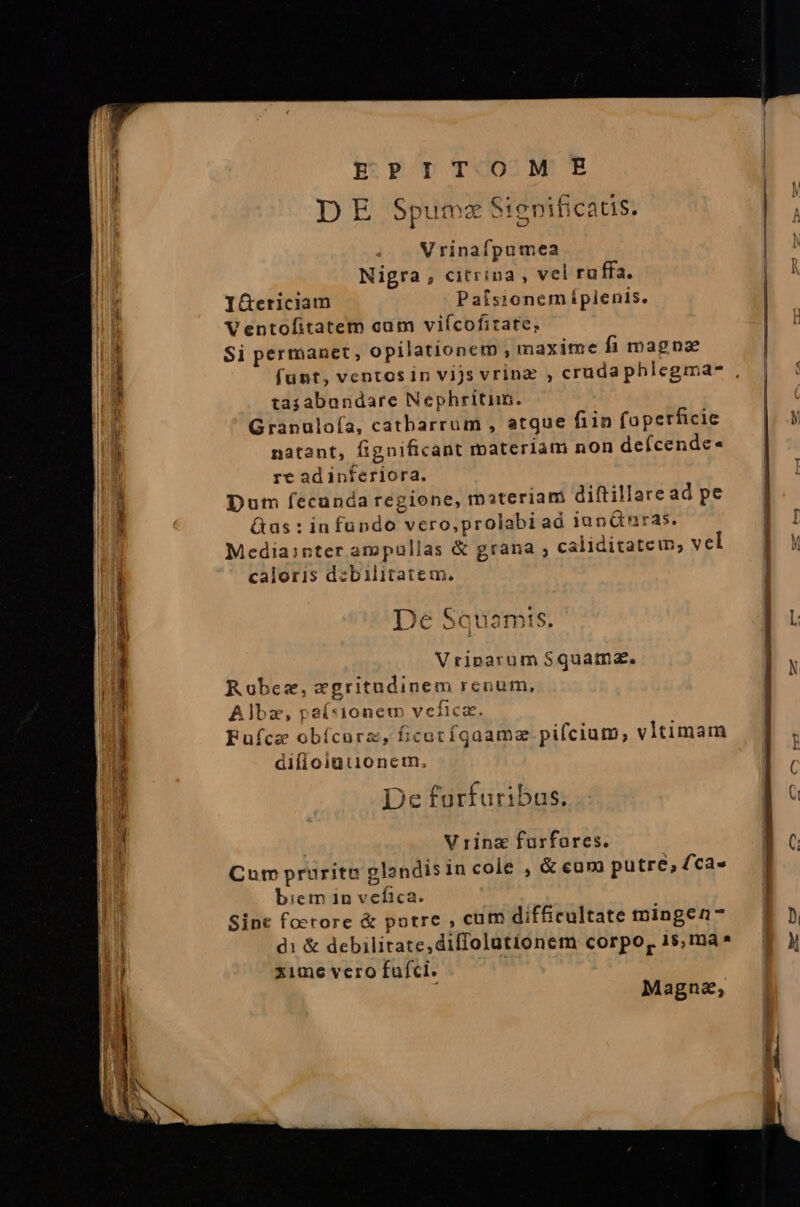 EPITOME
DE Spumæ Significatis.
Vrina ſpumea
Nigra, citrina, vel ruffa.
Ictericiam Paſsionem ſplenis.
Ventoſitatem cum viſcoſitate,
Si permanet, opilationem, maxime ſi magnæ
ſunt, ventos in vijs vrinæ, cruda phlegma-
ta; abundare Nephritim.
Granuloſa, catharrum, atque ſi in ſuperficie
natant, ſignificant materiam non deſcende-
re ad inferiora.
Dum ſecunda regione, materiam diſtillare ad pe
ctus: in fundo vero, prolabi ad iuncturas.
Media inter ampullas & grana, caliditatem, vel
caloris debilitatem.
De Squamis.
Vrinarum Squamæ.
Rubeæ, ægritudinem renum,
Albæ, paſsionem veſicæ.
Fuſcæ obſcuræ, ſicut ſquamæ piſcium, vltimam
diſſolutionem.
De furfuribus.
Vrinæ furfures.
Cum pruritu glandis in cole, & cum putre, ſca-
biem in veſica.
Sine fœtore & putre, cum difficultate mingen-
di & debilitate, diſſolutionem corporis, ma-
xime vero fuſci.
Magnæ,